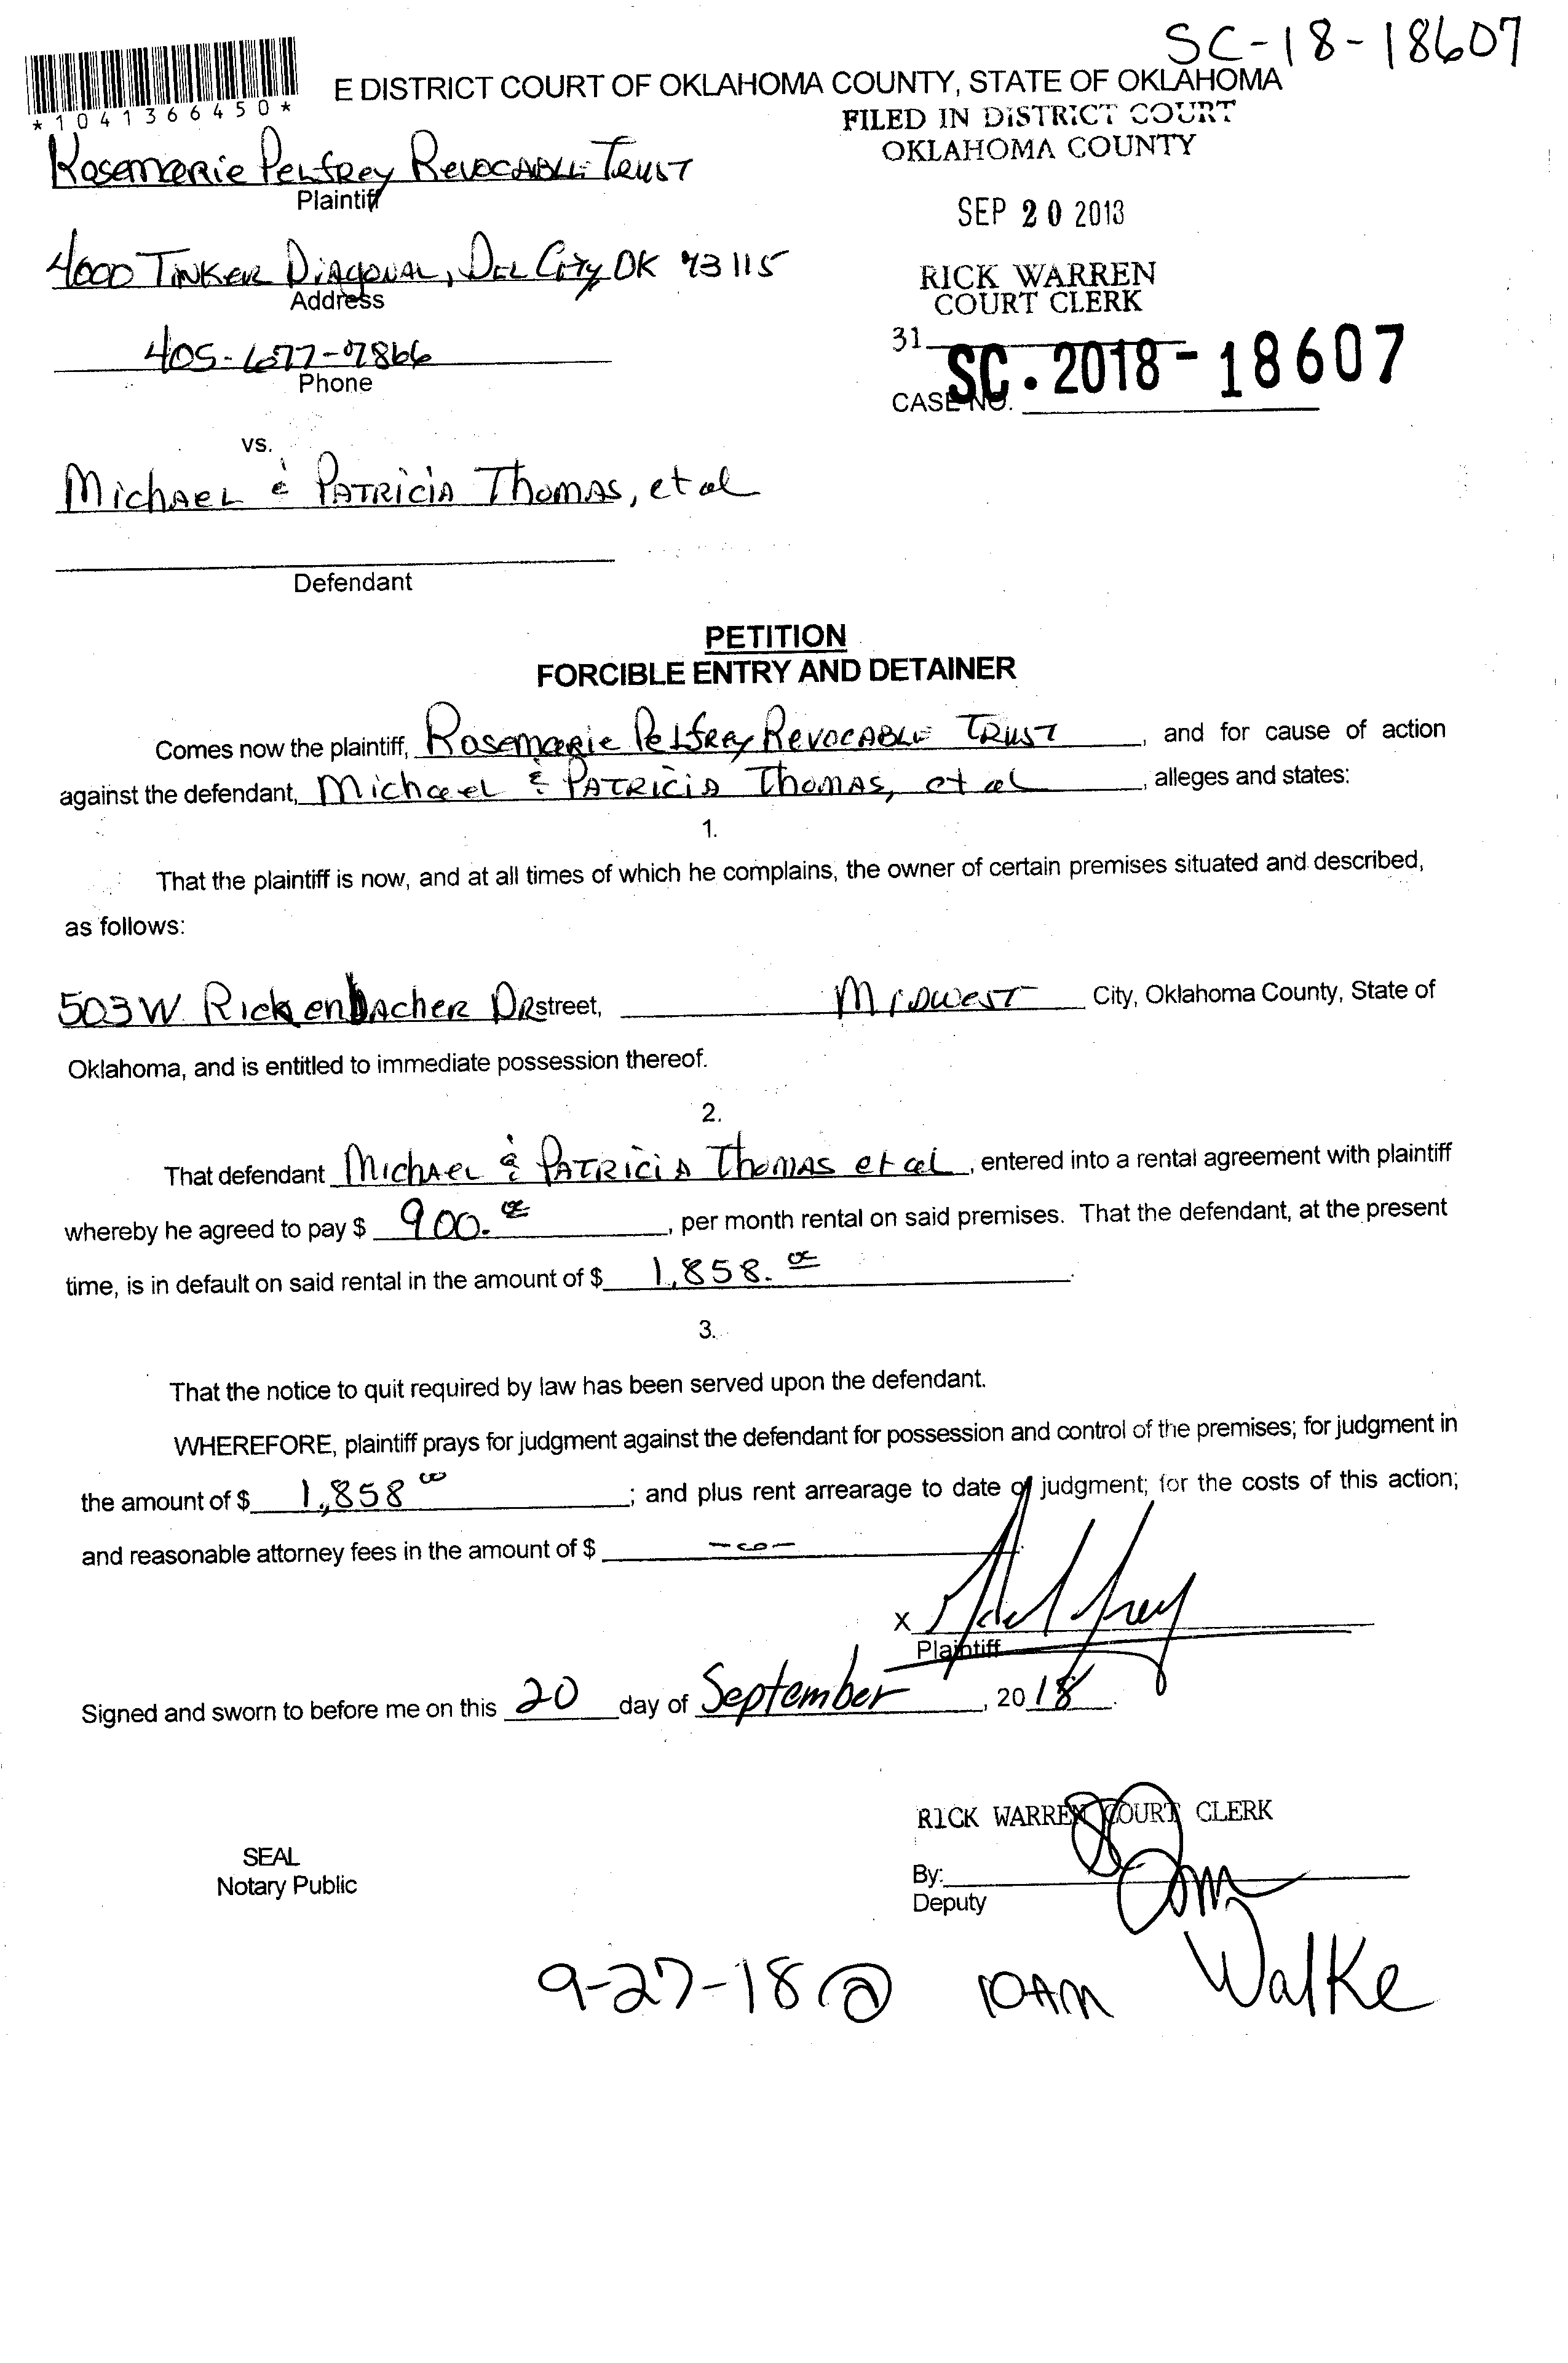 SC-18-18607
E DISTRICT COURT OF OKLAHOMA COUNTY, STATE OF OKLAHOMA
*1041366450*
FILED IN DISTRICT COURT
OKLAHOMA COUNTY
Rosemarie Pelfrey Revocable Trust
Plaintiff
SEP 20 2018
4000 Tinker Diagonal, Del City OK 73115
Address
RICK WARREN
COURT CLERK
405-677-7866
Phone
31
SC. 2018-18607
CASE NO.
vs.
Michael & Patricia Thomas, et al
Defendant
PETITION
FORCIBLE ENTRY AND DETAINER
Comes now the plaintiff, Rosemarie Pelfrey Revocable Trust, and for cause of action
against the defendant, Michael & Patricia Thomas, et al, alleges and states:
1.
That the plaintiff is now, and at all times of which he complains, the owner of certain premises situated and described,
as follows:
503 W Rickenbacher DR street, Midwest City, Oklahoma County, State of
Oklahoma, and is entitled to immediate possession thereof.
2.
That defendant Michael & Patricia Thomas et al, entered into a rental agreement with plaintiff
whereby he agreed to pay $ 900.00, per month rental on said premises. That the defendant, at the present
time, is in default on said rental in the amount of $ 1,858.00.
3.
That the notice to quit required by law has been served upon the defendant.
WHEREFORE, plaintiff prays for judgment against the defendant for possession and control of the premises; for judgment in
the amount of $ 1,858 00; and plus rent arrearage to date of judgment; for the costs of this action;
and reasonable attorney fees in the amount of $ -0-.
X
Plaintiff
Signed and sworn to before me on this 20 day of September, 2018.
RICK WARREN COURT CLERK
SEAL
Notary Public
By:
Deputy
9-27-18 @ 10AM Walke